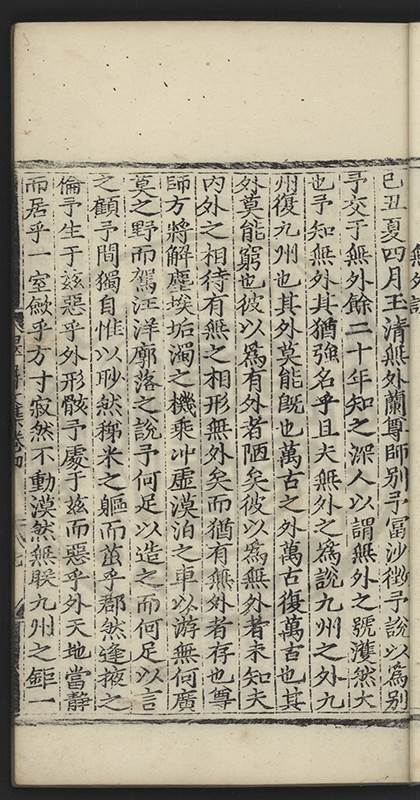 無外説
己丑夏四月玉清無外蘭尊師别予富沙徵予説以爲别
予交于無外餘二十年知之深人以謂無外之號濩然大
也予知無外其猶強名乎且夫無外之爲説九州之外九
州復九州也其外莫能既也萬古之外萬古復萬古也其
外莫能窮也彼以爲有外者陋矣彼以爲無外者未知夫
内外之相待有無之相形無外矣而猶有無外者存也尊
師方將解塵埃垢濁之機乘冲虛漠泊之車以游無何廣
莫之野而駕汪洋廓落之說予何足以造之而何足以言
之顧予間獨自惟以眇然稊米之軀而茁乎郡然逢掖之
倫予生于兹惡乎外形骸予處于兹而惡乎外天地當静
而居乎一室歛乎方寸寂然不動漠然無睽九州之鉅一